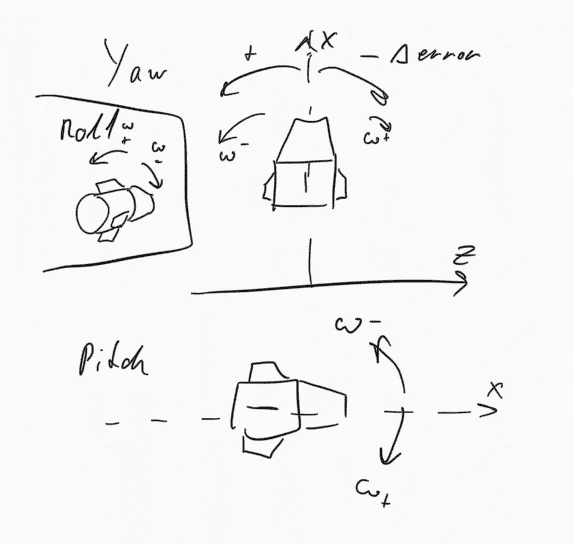 Yaw
+ X − Δ error
Roll ω + ω −
ω− ω+
Z
ω−
Pitch
X
ω+